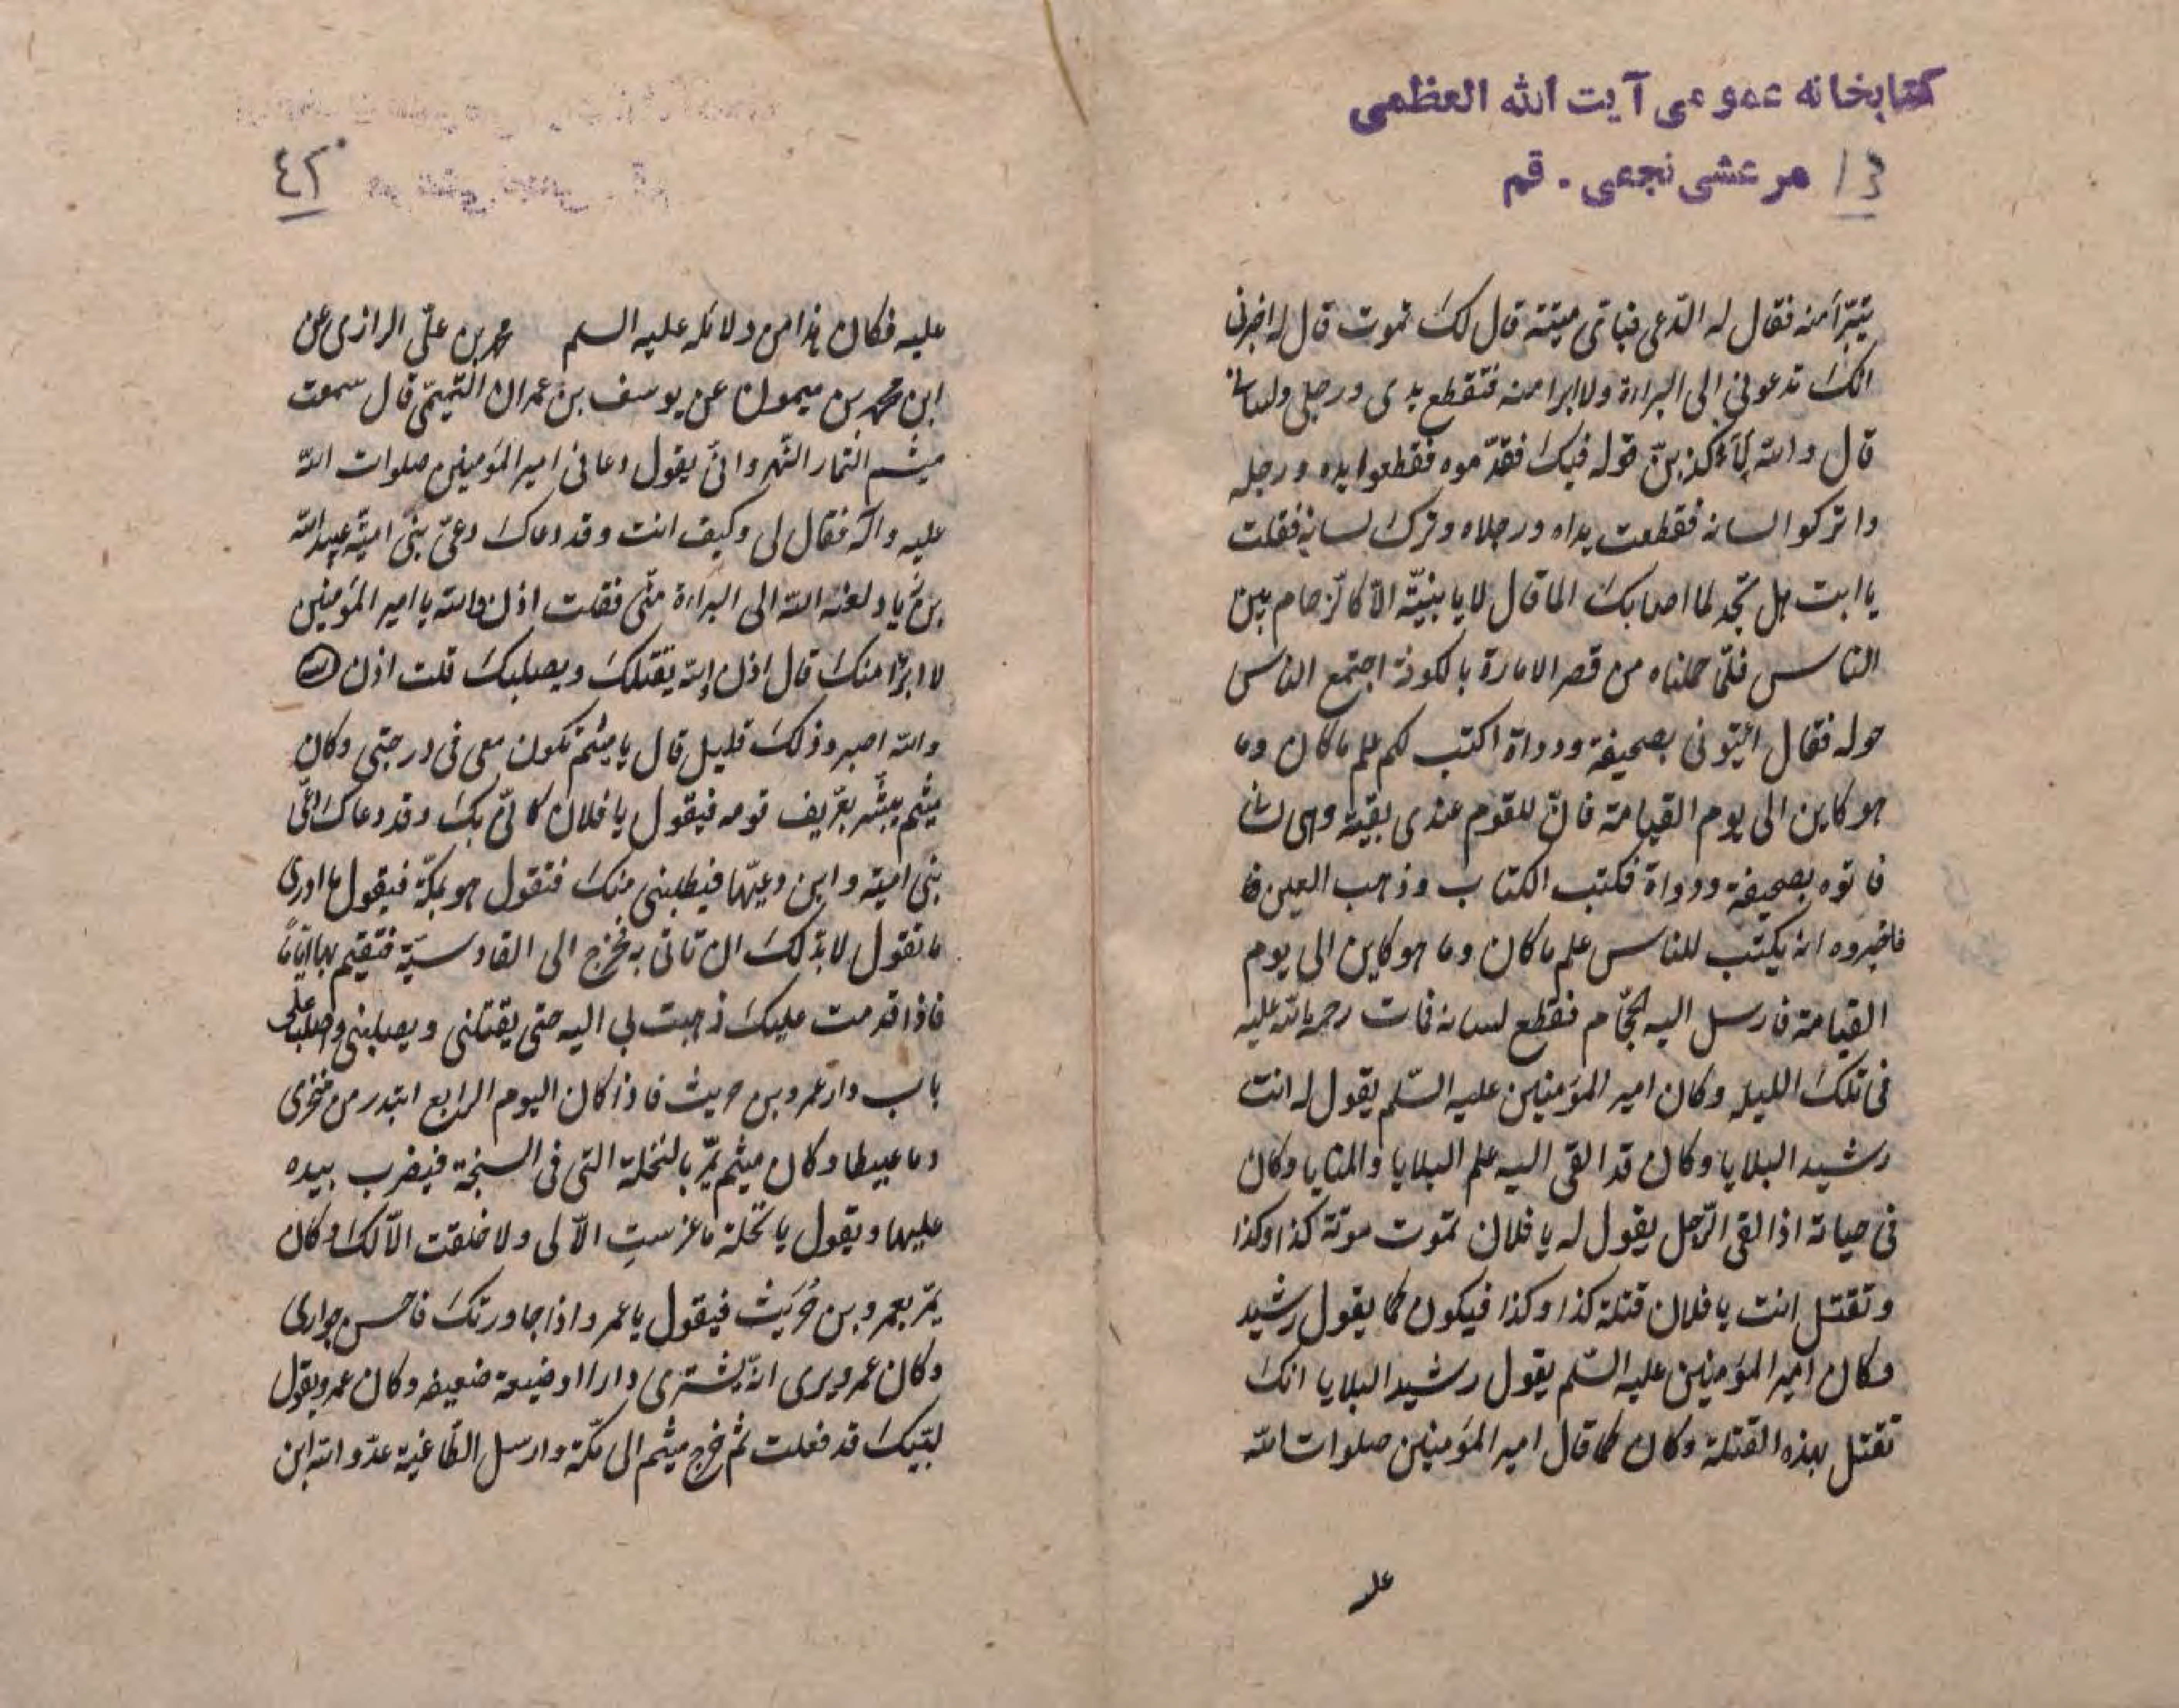 كتابخانه عمومى آيت الله العظمى
مرعشى نجفى - قم
يتبرّأ منه فقال له الدّعى فباىّ ميتة قال لك تموت قال له اخبرنى
انّك تدعونى الى البراءة ولا ابرا منه فتقطع يدى ورجلى ولسانى
قال والله لاكذبنّ قوله فيك فقدّموه فقطعوا يده ورجله
واتركوا لسانه فقطعت يداه ورجلاه وترك لسانه فقلت
يا ابت هل تجد لما اصابك الما قال لا يا بنيّة الّا كالزحام بين
الناس فلمّا حملناه من قصر الامارة بالكوفة اجتمع الناس
حوله فقال ائتونى بصحيفة ودواة اكتب لكم علم ما كان وما
هو كاين الى يوم القيامة فانّ للقوم عندى بقيّة وهى لسانى
فاتوه بصحيفة ودواة فكتب الكتاب وذهب العين
فاخبروه انه يكتب للناس علم ما كان وما هو كاين الى يوم
القيامة فارسل اليه الحجّام فقطع لسانه فمات رحمة الله عليه
فى تلك الليلة وكان امير المؤمنين عليه السّلم يقول له انت
رشيد البلايا وكان قد القى اليه علم البلايا والمنايا وكان
فى حياته اذا لقى الرّجل يقول له يا فلان تموت موتة كذا وكذا
وتقتل انت يا فلان قتلة كذا وكذا فيكون كما يقول رشيد
وكان امير المؤمنين عليه السّلم يقول رشيد البلايا انك
تقتل بهذه القتلة وكان كما قال امير المؤمنين صلوات الله
عليه فكان هذا من دلائله عليه السلم محمد بن علىّ الرازى عن
ابن محمد بن ميمون عن يوسف بن عمران التميمىّ قال سمعت
ميثم التمار النّهروانىّ يقول دعانى امير المؤمنين صلوات الله
عليه وآله فقال لى وكيف انت وقد دعاك دعىّ بنى اميّة عبيد الله
بن زياد لعنه الله الى البراءة منّى فقلت اذن والله يا امير المؤمنين
لا ابرّأ منك قال اذن والله يقتلك ويصلبك قلت اذن
والله اصبر وذلك قليل قال يا ميثم تكون معى فى درجتى وكان
ميثم يبشّر بعرّيف قومه فيقول يا فلان كانّى بك وقد دعاك دعىّ
بنى اميّة وابن دعيّها فيطلبنى منك فتقول هو بمكّة فيقول ما ادرى
ما تقول لا بدّ لك ان تاتى به فتخرج الى القادسيّة فتقيم بها ايّاماً
فاذا قدمت عليك ذهبت بى اليه حتى يقتلنى ويصلبنى على
باب دار عمرو بن حريث فاذا كان اليوم الرابع ابتدر من منخرى
دما عبيطا وكان ميثم يمرّ بالنخلة التى فى السبخة فيضرب بيده
عليها ويقول يا نخلة ما غرستِ الّا لى ولا خلقت الّا لك وكان
يمرّ بعمرو بن حُرَيث فيقول يا عمرو اذا جاورتك فاحسن جوارى
وكان عمرو يرى انّه يشترى دارا او ضيعة ضعيفه وكان عمرو يقول
لبّيك قد فعلت ثم خرج ميثم الى مكّة وارسل الطّاغية عدّو الله ابن